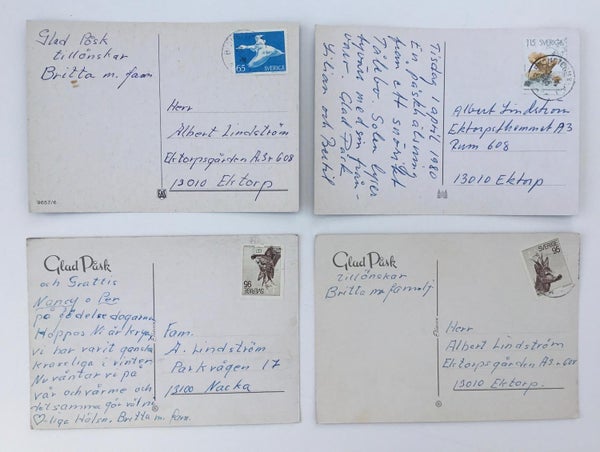 Glad Påsk
tillönskar
Britta m. fam
SVERIGE
65
Herr
Albert Lindström
Ektorpsgården A3r 608
13010 Ektorp
9657/6
Tisdag 1 april 1980
En påskhälsning
från ett snörikt
Tälebo. Solen lyser
med sin från-
varo. Glad Påsk
Lilian och Bertil
115 SVERIGE
Albert Lindström
Ektorpshemmet A3
Rum 608
13010 Ektorp
Glad Påsk
och Grattis
Nancy o Per
på födelsedagarna
Hoppas Ni är krya,
vi har varit ganska
krassliga i vinter
Nu väntar vi på
vår och värme och
detsamma gör väl ni
♡-liga Hälsn. Britta m. fam.
SVERIGE
95
Fam.
A. Lindström
Parkvägen 17
13100 Nacka
Glad Påsk
tillönskar
Britta m familj
SVERIGE
95
Herr
Albert Lindström
Ektorpsgården A3-608
13010 Ektorp.